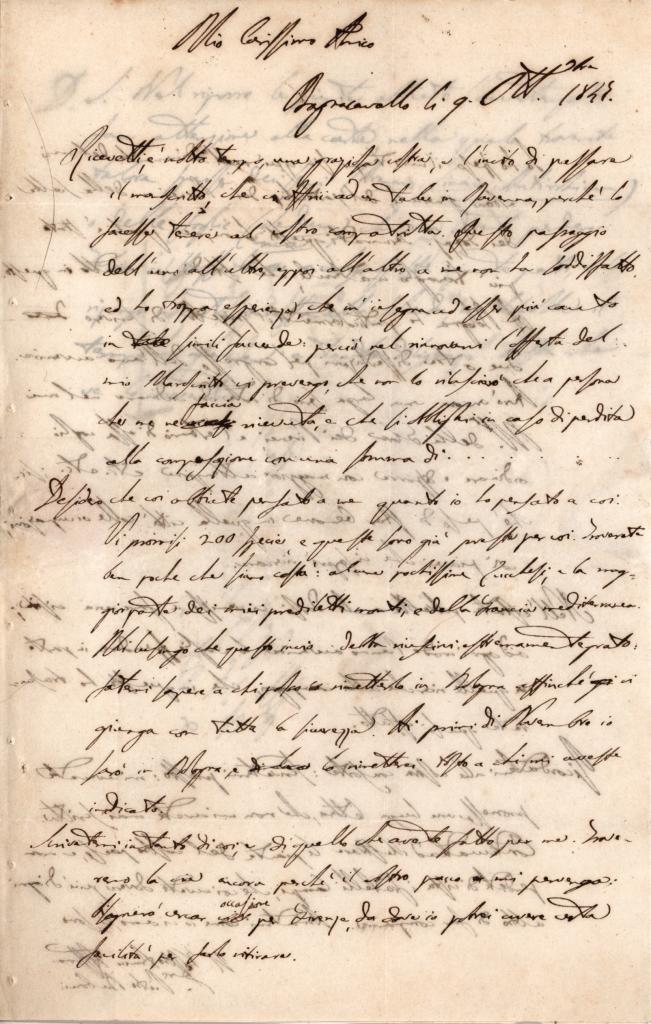 Mio Carissimo Amico
Bagnacavallo li 9. Ott.bre 184
Ricevetti, è molto tempo, una graziosa vostra, e l'invito di passare
il manoscritto, che vi offrii ad un tale in Ravenna, perché lo
facesse tenere al vostro compatriotta. Questo passaggio
dell'uno all'altro, eppoi all'altro a me non ha soddisfatto,
ed ho troppa esperienza, che m'insegna ad esser più cauto
in simili faccende: perciò nel rinnovarvi l'offerta del
mio Manoscritto vi prevengo, che non lo rilascierò che a persona
che me ne faccia ricevuta, e che si obblighi in caso di perdita
alla compensazione con una somma di . . . . . . . . .
Desidero che voi abbiate pensato a me quanto io ho pensato a voi.
Vi promisi 200 specie e queste sono già pronte per voi. Troverete
ben poche che siano costà: alcune pochissime e la mag-
gior parte dei miei prediletti monti, e della Francia mediterranea.
Mi lusingo che questo invio debba riuscirvi estremamente grato:
fatemi sapere a chi posso rimetterlo in affinché vi
giunga con tutta la sicurezza. Ai primi di Novembre io
sarò in e lo rimetterei tosto a chi mi aveste
indicato.
Scrivetemi intanto di voi, e di quello che avete fatto per me. Trove-
remo la via ancora perché il vostro pacco a mi pervenga:
Bisognerà cercar occasione per Firenze, da dove io potrei avere molta
facilità per farlo ritirare.